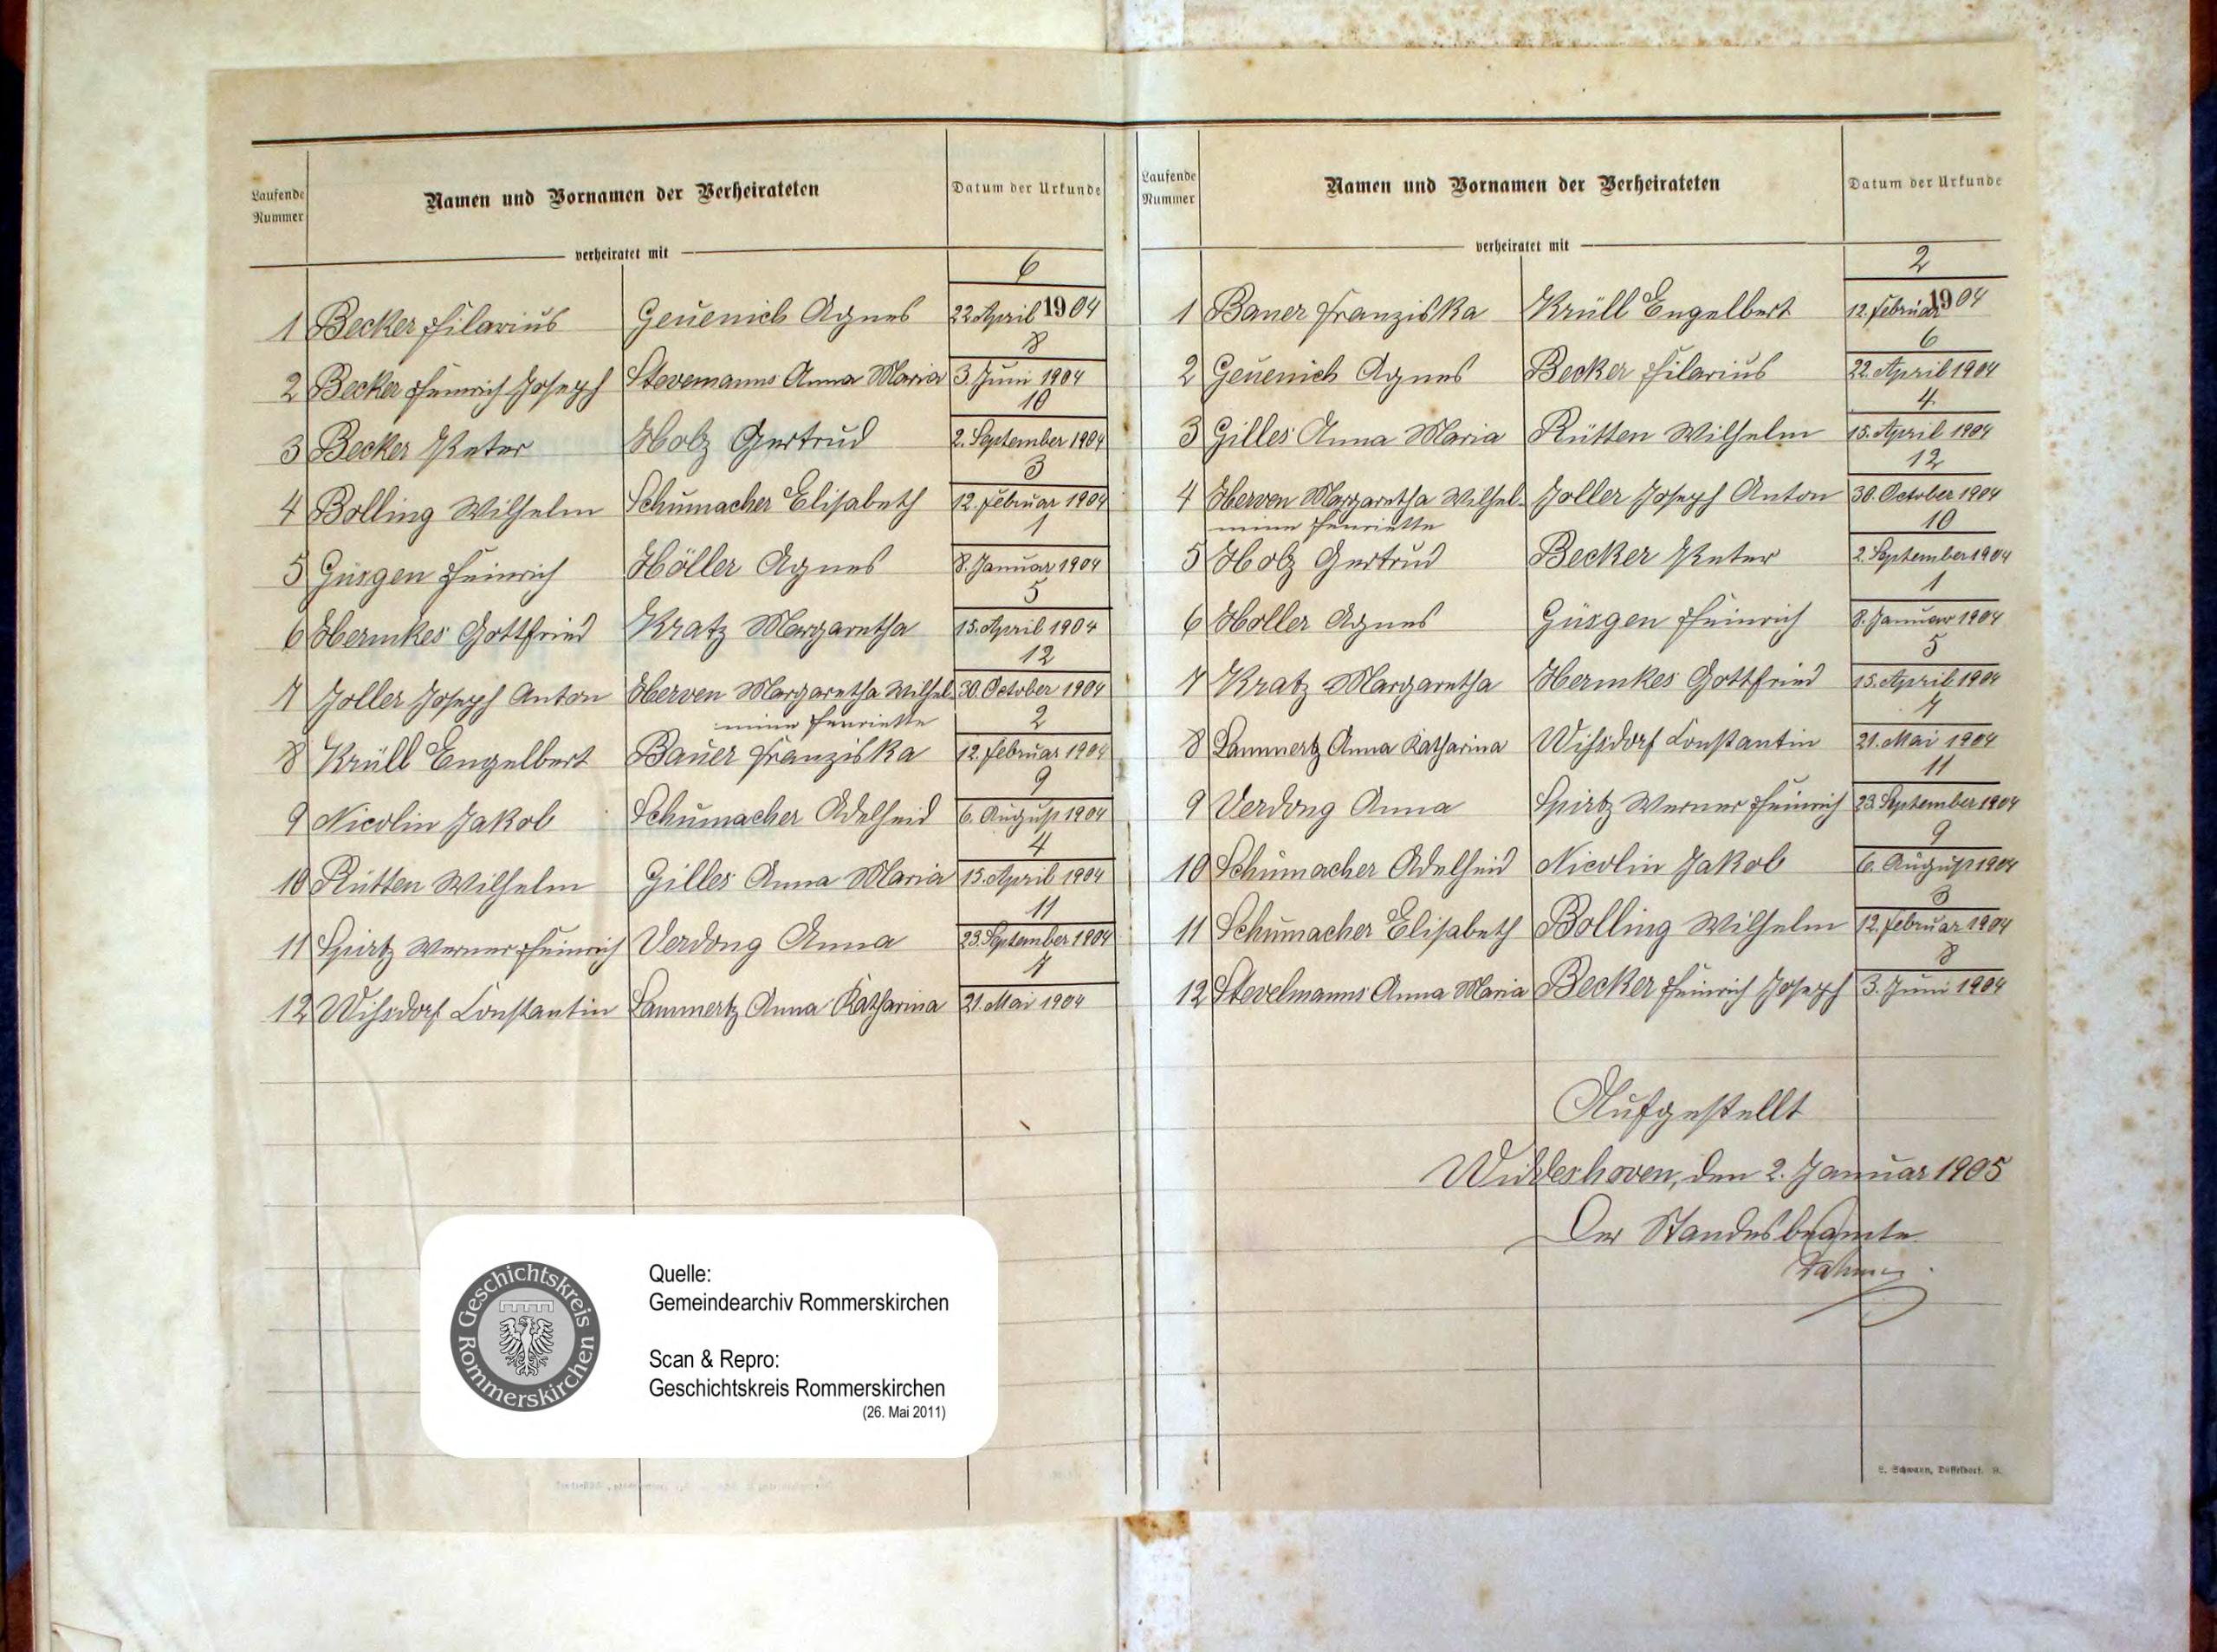 Laufende Nummer
Namen und Vornamen der Verheirateten
Datum der Urkunde
verheiratet mit
6
1 Becker Hilarius Geuenich Agnes 22 April 1904
8
2 Becker Heinrich Joseph Stevemanns Anna Maria 3. Juni 1904
10
3 Becker Peter Holz Gertrud 2. September 1904
3
4 Bolling Wilhelm Schumacher Elisabeth 12. Februar 1904
1
5 Güsgen Heinrich Höller Agnes 8. Januar 1904
5
6 Hermkes Gottfried Kratz Margaretha 15. April 1904
12
7 Joller Joseph Anton Herven Margaretha Wilhel- 30. October 1904
mine Henriette
2
8 Krüll Engelbert Bauer Franziska 12. Februar 1904
9
9 Nicolin Jakob Schumacher Adelheid 6. August 1904
4
10 Rütten Wilhelm Gilles Anna Maria 15. April 1904
11
11 Spirtz Werner Heinrich Verdong Anna 23. September 1904
7
12 Wihsdorf Constantin Lammertz Anna Katharina 21. Mai 1904
Laufende Nummer
Namen und Vornamen der Verheirateten
Datum der Urkunde
verheiratet mit
2
1 Bauer Franziska Krüll Engelbert 12. Februar 1904
6
2 Geuenich Agnes Becker Hilarius 22. April 1904
4
3 Gilles Anna Maria Rütten Wilhelm 15. April 1904
12
4 Herven Margaretha Wilhel- Joller Joseph Anton 30. October 1904
mine Henriette
10
5 Holz Gertrud Becker Peter 2. September 1904
1
6 Holler Agnes Güsgen Heinrich 8. Januar 1904
5
7 Kratz Margaretha Hermkes Gottfried 15. April 1904
7
8 Lammertz Anna Katharina Wihsdorf Constantin 21. Mai 1904
11
9 Verdong Anna Spirtz Werner Heinrich 23. September 1904
9
10 Schumacher Adelheid Nicolin Jakob 6. August 1904
3
11 Schumacher Elisabeth Bolling Wilhelm 12. Februar 1904
8
12 Stevelmanns Anna Maria Becker Heinrich Joseph 3. Juni 1904
Aufgestellt
Widdeshoven, den 2. Januar 1905
Der Standesbeamte
L. Schwann, Düsseldorf.
Geschichtskreis Rommerskirchen
Quelle:
Gemeindearchiv Rommerskirchen
Scan & Repro:
Geschichtskreis Rommerskirchen
(26. Mai 2011)